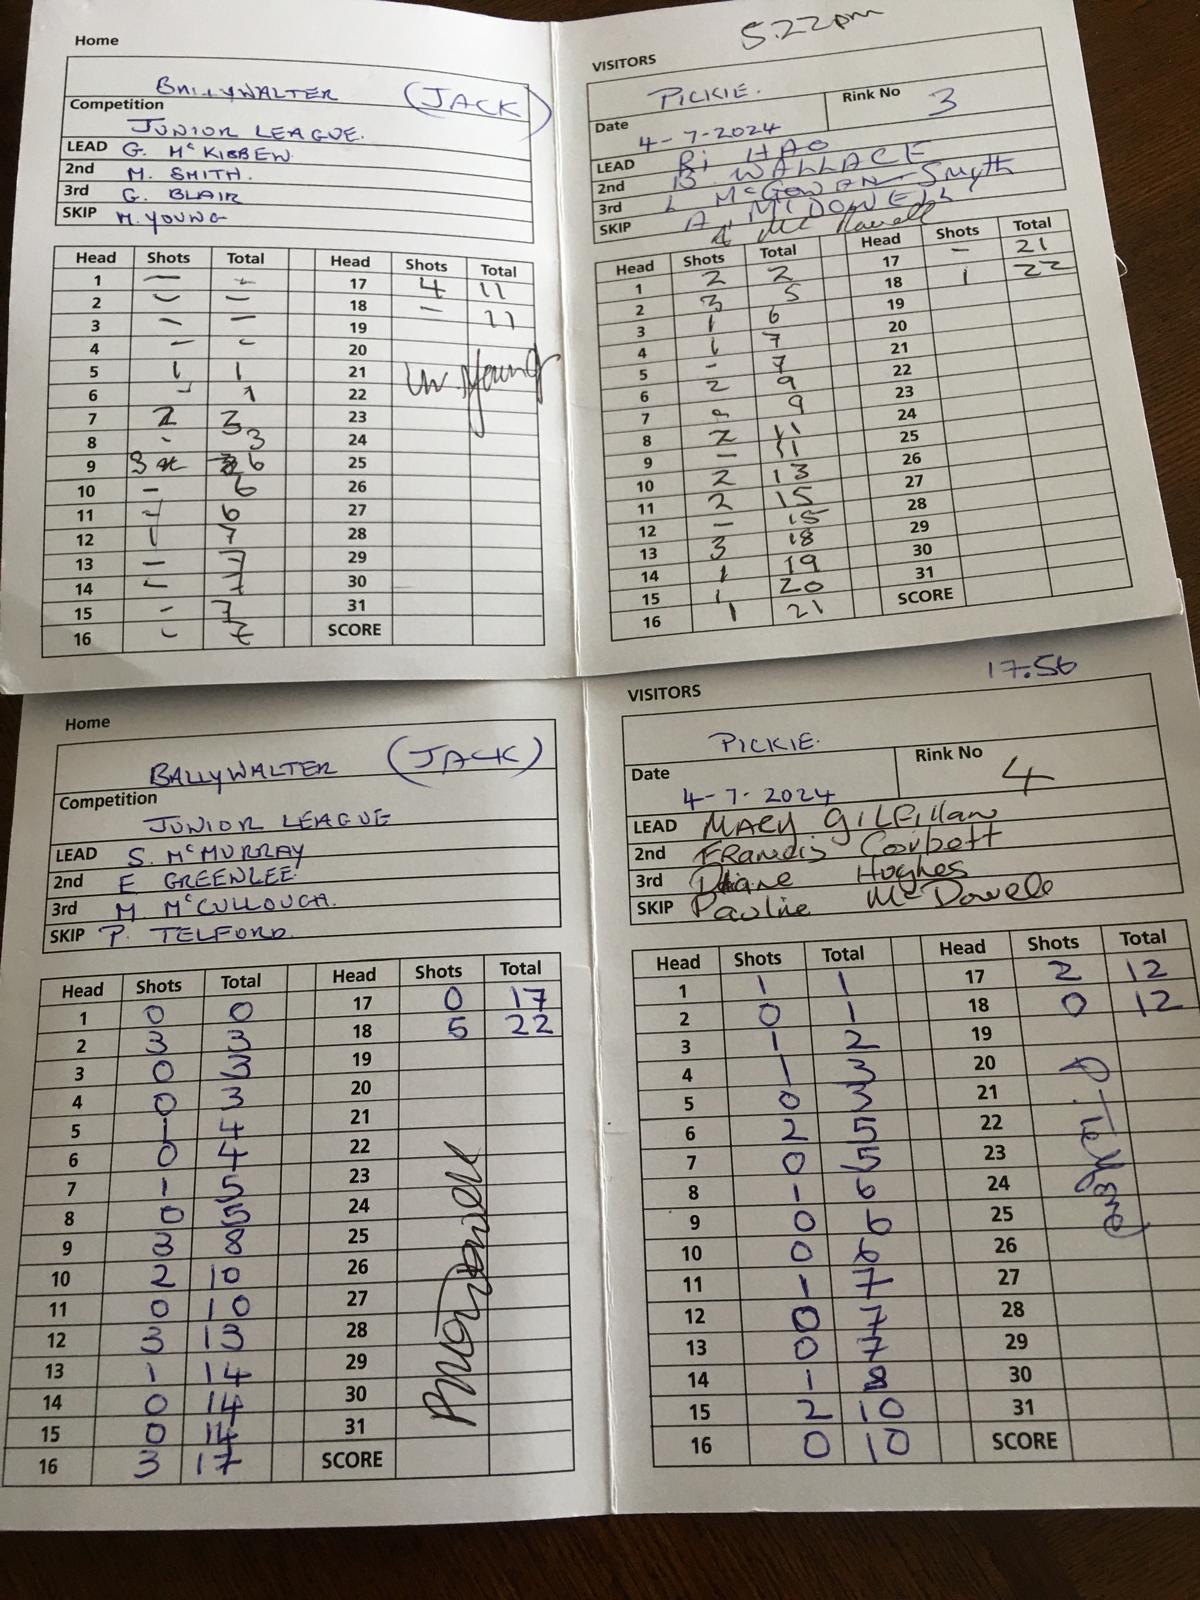 Home
BALLYWALTER (JACK)
Competition
JUNIOR LEAGUE.
LEAD G. McKIBBEN
2nd M. SMITH.
3rd G. BLAIR
SKIP M. YOUNG
Head Shots Total Head Shots Total
1 — — 17 4 11
2 — — 18 — 11
3 — — 19
4 — — 20
5 1 1 21
6 — 1 22
7 2 3 23
8 - 3 24
9 3 6 25
10 — 6 26
11 - 6 27
12 1 7 28
13 — 7 29
14 — 7 30
15 - 7 31
16 - 7 SCORE
W. Young
5.22pm
VISITORS
PICKIE.
Rink No 3
Date 4-7-2024
LEAD Ri HAO
2nd B. WALLACE
3rd L McGOWAN-Smyth
SKIP A. McDOWELL
A Mc Dowell
Head Shots Total Head Shots Total
1 2 2 17 — 21
2 3 5 18 1 22
3 1 6 19
4 1 7 20
5 - 7 21
6 2 9 22
7 - 9 23
8 2 11 24
9 — 11 25
10 2 13 26
11 2 15 27
12 — 15 28
13 3 18 29
14 1 19 30
15 1 20 31
16 1 21 SCORE
Home
BALLYWALTER (JACK)
Competition
JUNIOR LEAGUE
LEAD S. McMURRAY
2nd E GREENLEE
3rd M. McCULLOUGH.
SKIP P. TELFORD.
Head Shots Total Head Shots Total
1 0 0 17 0 17
2 3 3 18 5 22
3 0 3 19
4 0 3 20
5 1 4 21
6 0 4 22
7 1 5 23
8 0 5 24
9 3 8 25
10 2 10 26
11 0 10 27
12 3 13 28
13 1 14 29
14 0 14 30
15 0 14 31
16 3 17 SCORE
PMcDowell
17.56
VISITORS
PICKIE.
Rink No 4
Date 4-7-2024
LEAD MARY GILFillan
2nd FRancis Corbett
3rd Diane Hughes
SKIP Pauline McDowell
Head Shots Total Head Shots Total
1 1 1 17 2 12
2 0 1 18 0 12
3 1 2 19
4 1 3 20
5 0 3 21
6 2 5 22
7 0 5 23
8 1 6 24
9 0 6 25
10 0 6 26
11 1 7 27
12 0 7 28
13 0 7 29
14 1 8 30
15 2 10 31
16 0 10 SCORE
P. Telford